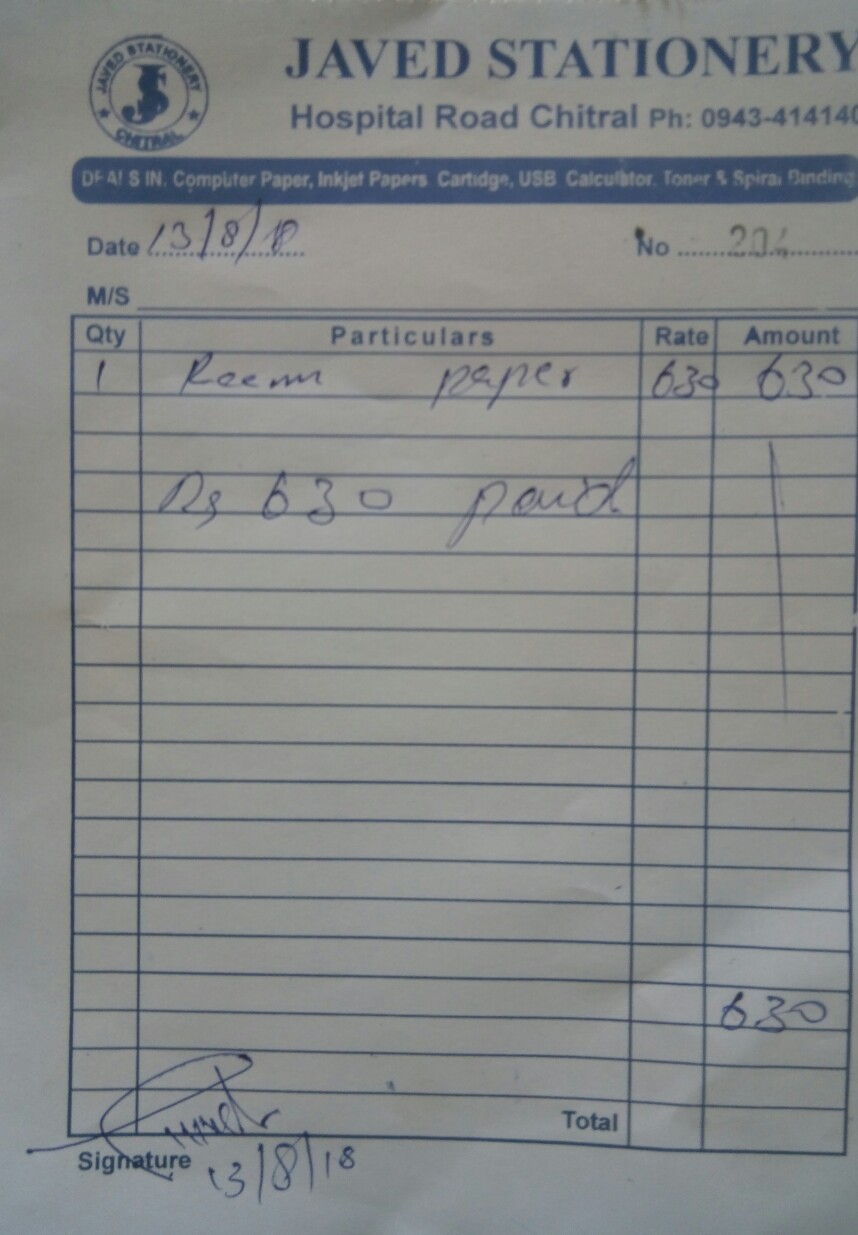 JAVED STATIONERY
CHITRAL
JAVED STATIONERY
Hospital Road Chitral Ph: 0943-414140
DEALS IN. Computer Paper, Inkjet Papers Cartidge, USB Calculator, Toner & Spiral Binding
Date 13/8/18 No 204
M/S
Qty Particulars Rate Amount
1 Reem paper 630 630
Rs 630 paid
630
Total
Signature
13/8/18